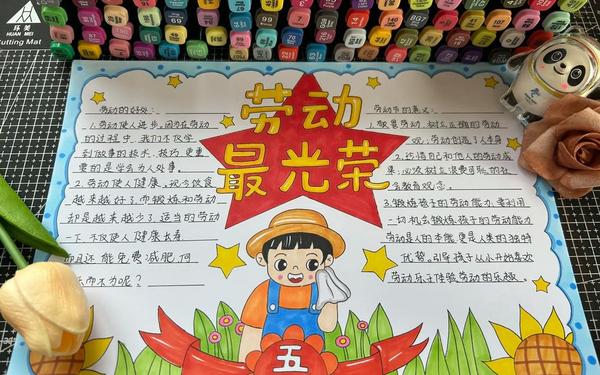 劳动最光荣
劳动的好处:
1.劳动使人进步。因为在劳动
的过程中,我们不仅学
到做事的技术、技巧,更重
要的是学会为人处事。
2.劳动使人健康。现今饮食
越来越好了,而锻炼和劳动
却是越来越少了,适当的劳动
一下,不仅使人健康长寿
而且还能免费减肥,何
乐而不为呢?
劳动节的意义:
1.敬畏劳动,树立正确的劳动
观,劳动创造了人本身
2.珍惜自己和他人的劳动成
果,必须树立浪费可耻的社
会教育观念。
3.锻炼孩子的劳动能力,要利用
一切机会锻炼孩子的劳动能力
劳动是人的本能,更是人类的独特
优势。引导孩子从小开始喜欢
劳动,乐于体验劳动的乐趣。
五
HUAN MEI
Cutting Mat